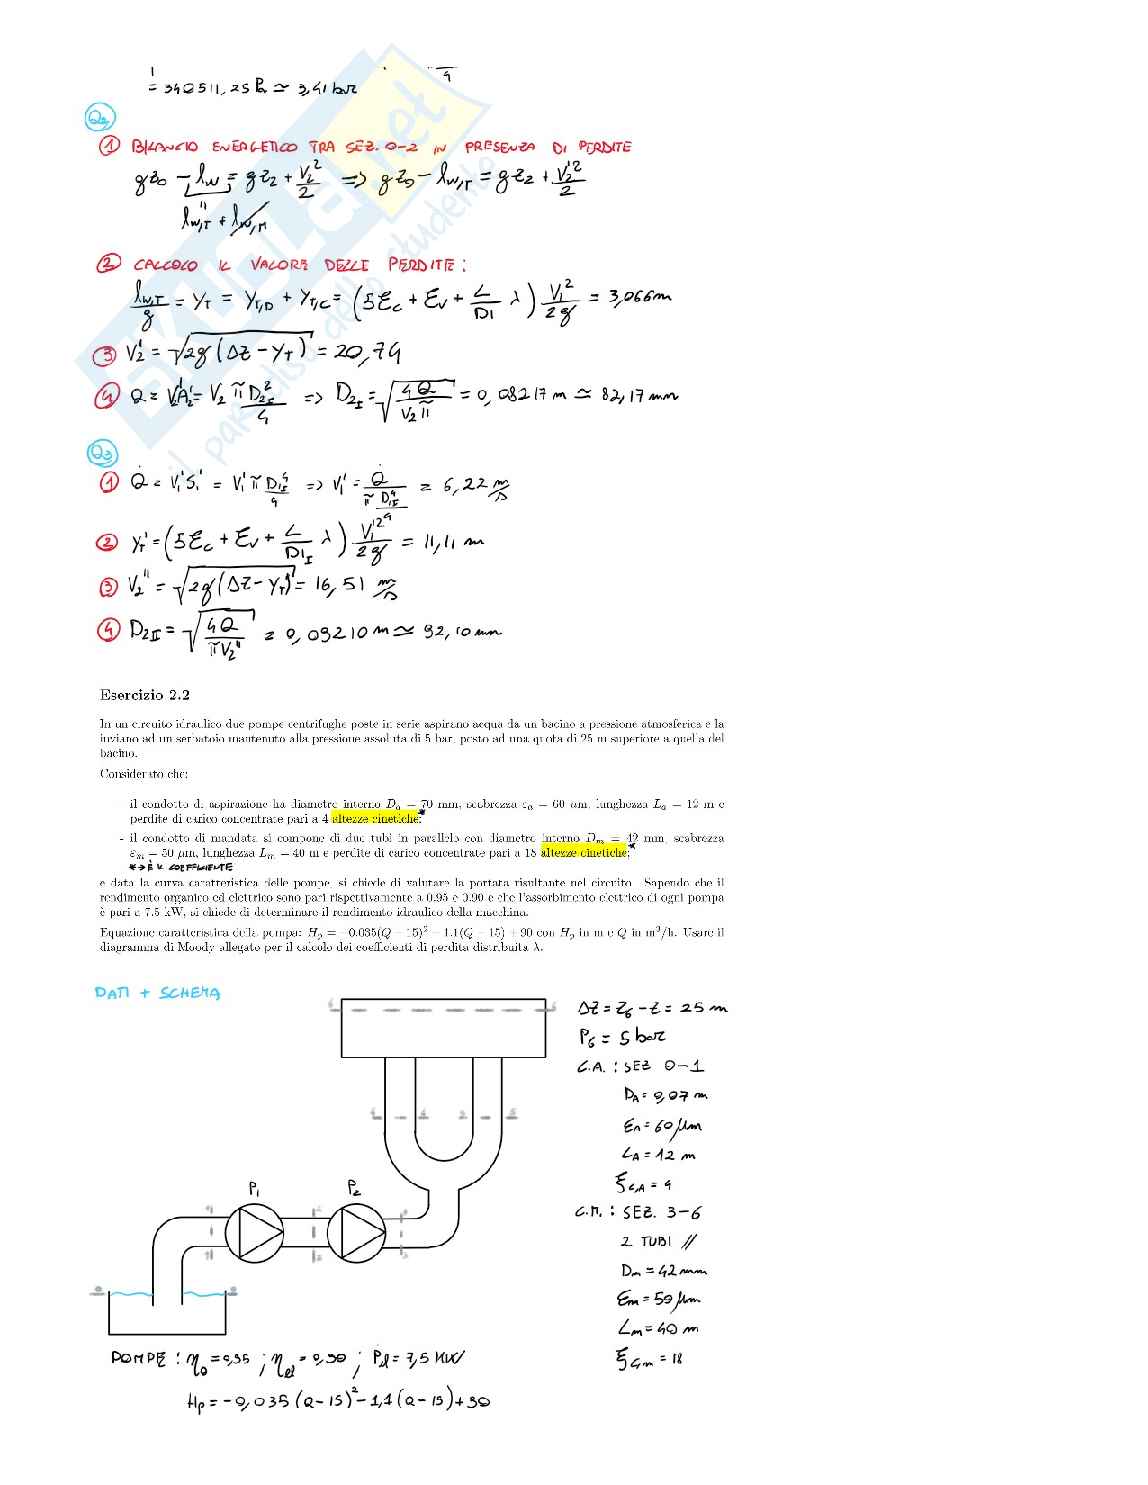 = 340511,25 Pa ≃ 3,41 bar
Q2
① BILANCIO ENERGETICO TRA SEZ. 0-2 IN PRESENZA DI PERDITE
gz₀ - lw = gz₂ + V₂²/2 => gz₀ - lw,T = gz₂ + V₂'²/2
lw,T + lw,M
② CALCOLO IL VALORE DELLE PERDITE:
lw,T/g = YT = YT,D + YT,C = (5ξc + ξv + L/D1 λ) V₁²/2g = 3,066 m
③ V₂' = √2g(ΔZ - YT) = 20,79
④ Q = V₂'A₂' = V₂ π D₂I²/4 => D₂I = √4Q/V₂π = 0,08217 m ≃ 82,17 mm
Q3
① Q = V₁'S₁' = V₁' π D1I²/4 => V₁' = Q/π D1I²/4 = 6,22 m/s
② YT' = (5ξc + ξv + L/D1I λ) V₁'²/2g = 11,11 m
③ V₂'' = √2g(ΔZ - YT') = 16,51 m/s
④ D₂II = √4Q/πV₂'' = 0,09210 m ≃ 92,10 mm
Esercizio 2.2
In un circuito idraulico due pompe centrifughe poste in serie aspirano acqua da un bacino a pressione atmosferica e la
inviano ad un serbatoio mantenuto alla pressione assoluta di 5 bar, posto ad una quota di 25 m superiore a quella del
bacino.
Considerato che:
- il condotto di aspirazione ha diametro interno Da = 70 mm, scabrezza εa = 60 μm, lunghezza La = 12 m e
perdite di carico concentrate pari a 4 altezze cinetiche;*
- il condotto di mandata si compone di due tubi in parallelo con diametro interno Dm = 42 mm, scabrezza
εm = 50 μm, lunghezza Lm = 40 m e perdite di carico concentrate pari a 18 altezze cinetiche;*
*→ È IL COEFFICIENTE
e data la curva caratteristica delle pompe, si chiede di valutare la portata risultante nel circuito. Sapendo che il
rendimento organico ed elettrico sono pari rispettivamente a 0.95 e 0.90 e che l'assorbimento elettrico di ogni pompa
è pari a 7.5 kW, si chiede di determinare il rendimento idraulico della macchina.
Equazione caratteristica della pompa: Hp = −0.035(Q − 15)² − 1.1(Q − 15) + 90 con Hp in m e Q in m³/h. Usare il
diagramma di Moody allegato per il calcolo dei coefficienti di perdita distribuita λ.
DATI + SCHEMA
ΔZ = Z₆ - Z = 25 m
P₆ = 5 bar
C.A. : SEZ 0-1
DA = 0,07 m
EA = 60 μm
LA = 12 m
ξC,A = 4
C.M. : SEZ. 3-6
2 TUBI //
Dm = 42 mm
Em = 50 μm
Lm = 40 m
ξC,m = 18
P1 P2
POMPE : ηo = 0,95 ; ηel = 0,90 ; Pel = 7,5 KW
Hp = -0,035 (Q-15)² - 1,1 (Q-15) + 90
SKUOLA.net
il paradiso dello studente